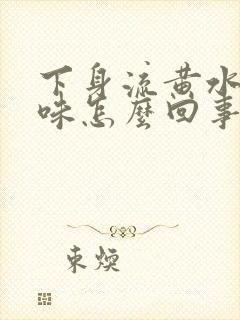 下身流黄水
味怎麼回事
东煐